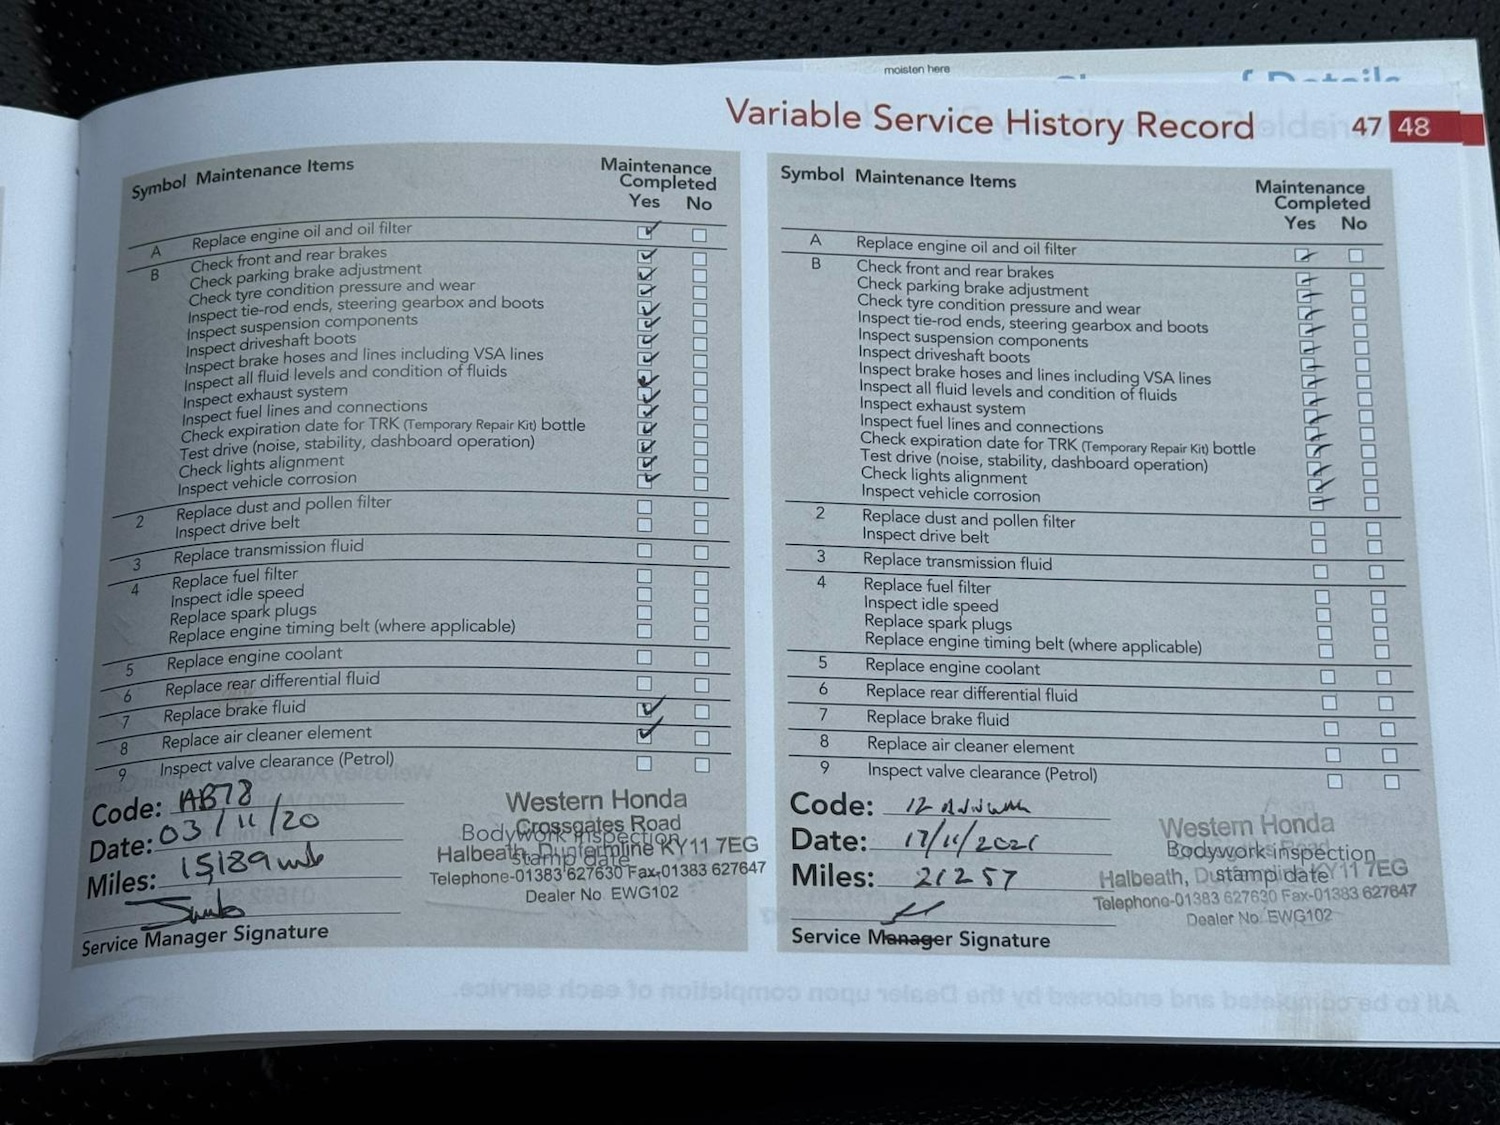 moisten here
Variable Service History Record
47 48
Symbol Maintenance Items
Maintenance
Completed
Yes No
A Replace engine oil and oil filter
B Check front and rear brakes
Check parking brake adjustment
Check tyre condition pressure and wear
Inspect tie-rod ends, steering gearbox and boots
Inspect suspension components
Inspect driveshaft boots
Inspect brake hoses and lines including VSA lines
Inspect all fluid levels and condition of fluids
Inspect exhaust system
Inspect fuel lines and connections
Check expiration date for TRK (Temporary Repair Kit) bottle
Test drive (noise, stability, dashboard operation)
Check lights alignment
Inspect vehicle corrosion
2 Replace dust and pollen filter
Inspect drive belt
3 Replace transmission fluid
4 Replace fuel filter
Inspect idle speed
Replace spark plugs
Replace engine timing belt (where applicable)
5 Replace engine coolant
6 Replace rear differential fluid
7 Replace brake fluid
8 Replace air cleaner element
9 Inspect valve clearance (Petrol)
Code: AB78
Date: 03/11/20
Miles: 15189
Service Manager Signature
Western Honda
Crossgates Road
Bodywork inspection
stamp date
Halbeath, Dunfermline KY11 7EG
Telephone-01383 627630 Fax-01383 627647
Dealer No EWG102
Symbol Maintenance Items
Maintenance
Completed
Yes No
A Replace engine oil and oil filter
B Check front and rear brakes
Check parking brake adjustment
Check tyre condition pressure and wear
Inspect tie-rod ends, steering gearbox and boots
Inspect suspension components
Inspect driveshaft boots
Inspect brake hoses and lines including VSA lines
Inspect all fluid levels and condition of fluids
Inspect exhaust system
Inspect fuel lines and connections
Check expiration date for TRK (Temporary Repair Kit) bottle
Test drive (noise, stability, dashboard operation)
Check lights alignment
Inspect vehicle corrosion
2 Replace dust and pollen filter
Inspect drive belt
3 Replace transmission fluid
4 Replace fuel filter
Inspect idle speed
Replace spark plugs
Replace engine timing belt (where applicable)
5 Replace engine coolant
6 Replace rear differential fluid
7 Replace brake fluid
8 Replace air cleaner element
9 Inspect valve clearance (Petrol)
Code: 12
Date: 17/11/2021
Miles: 21257
Service Manager Signature
Western Honda
Bodywork inspection
stamp date
Halbeath, 11 7EG
Telephone-01383 627630 Fax-01383 627647
Dealer No. EWG102